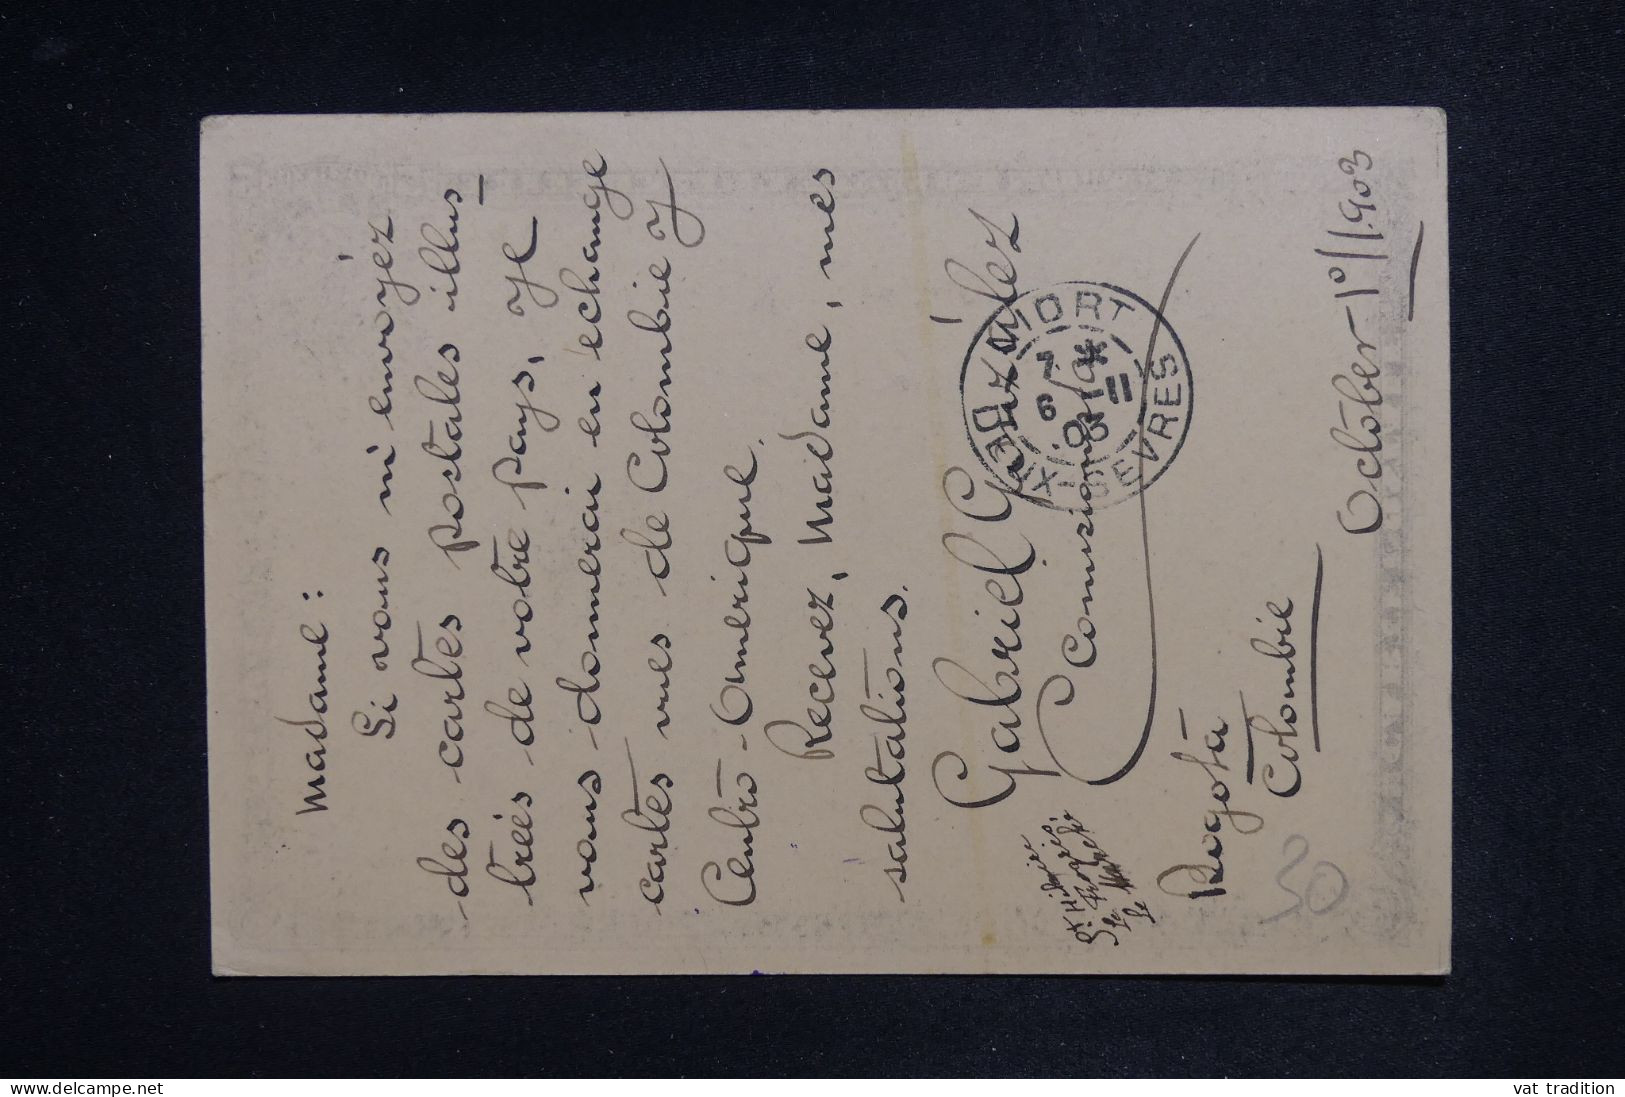 Madame:
Si vous m'envoyéz
des cartes postales illus-
treés de votre pays, je
vous donnerai en échange
cartes vues de Colombie y
Centro-Amerique.
Recevez, Madame, mes
salutations.
Gabriel González
Comisionista
Bogotá
Colombie
October 1º/1.903
NIORT
DEUX SEVRES
7
6 11
03
30
www.delcampe.net
vat tradition